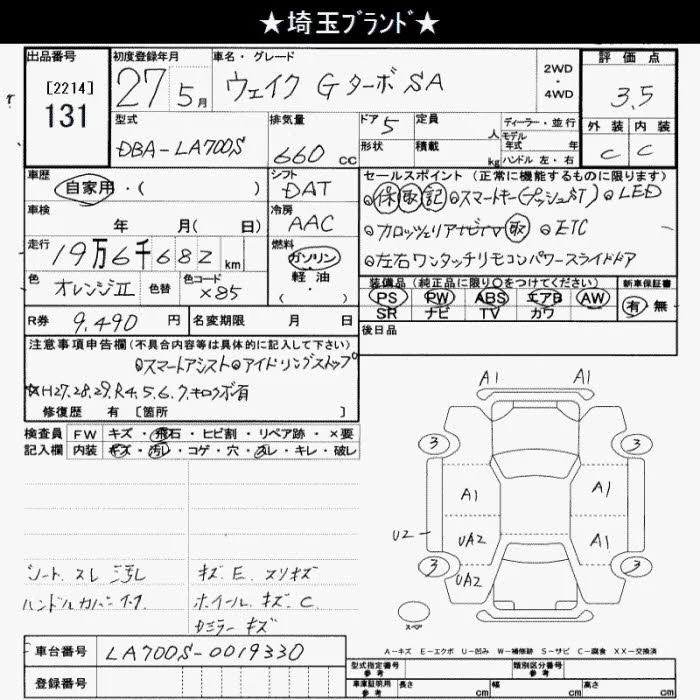 ★埼玉ブランド★
出品番号
[2214]
131
初度登録年月
27年5月
車名・グレード
ウェイク Gターボ SA
2WD
・
4WD
評価点
3.5
外装 内装
C C
型式
DBA-LA700S
排気量
660 cc
ドア 5
形状
定員 人
積載 kg
ディーラー・並行
モデル年式 年
ハンドル 左・右
車歴
自家用・( )
シフト
DAT
車検
年 月(日)
冷房
AAC
走行
19万6千682 km
燃料
ガソリン
軽油
( ・ )
色
オレンジII
色替
色コード
X85
R券 9,490 円
名変期限 月 日
セールスポイント(正常に機能するものに限ります)
保 取 記 スマートキー(プッシュST) LED
カロッツェリアナビTV 取 ETC
左右ワンタッチリモコンパワースライドドア
装備品(純正品に限り○をつけてください)
PS PW ABS エアB AW
SR ナビ TV カワ
新車保証書
有・無
後日品
注意事項申告欄(不具合内容等は具体的に記入して下さい)
スマートアシスト アイドリングストップ
☆H27.28.29.R4.5.6.7.キロク簿有
修復歴 有 [箇所 ]
検査員記入欄
FW キズ・飛石・ヒビ割・リペア跡・×要
内装 キズ・汚レ・コゲ・穴・スレ・キレ・破レ
シート スレ 汚レ
キズ E. スリキズ
ホイール キズ C.
ハンドルカバー
ミラー キズ
A1 A1
3 3
A1 A1
U2 UA2 A1
3 UA2 3
スペア
A-キズ E-エクボ U-凹み W-補修跡 S-サビ C-腐食 XX-交換済
車台番号 LA700S-0019330
登録番号
型式指定番号 参考
類別区分番号 参考
車庫証明用 参考 長さ cm 幅 cm 高さ cm